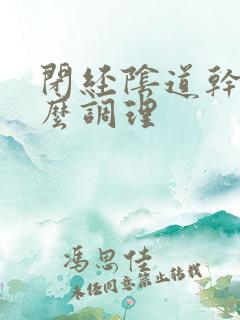 閉經陰道幹
麼調理
馮思佳
未經同意禁止轉載